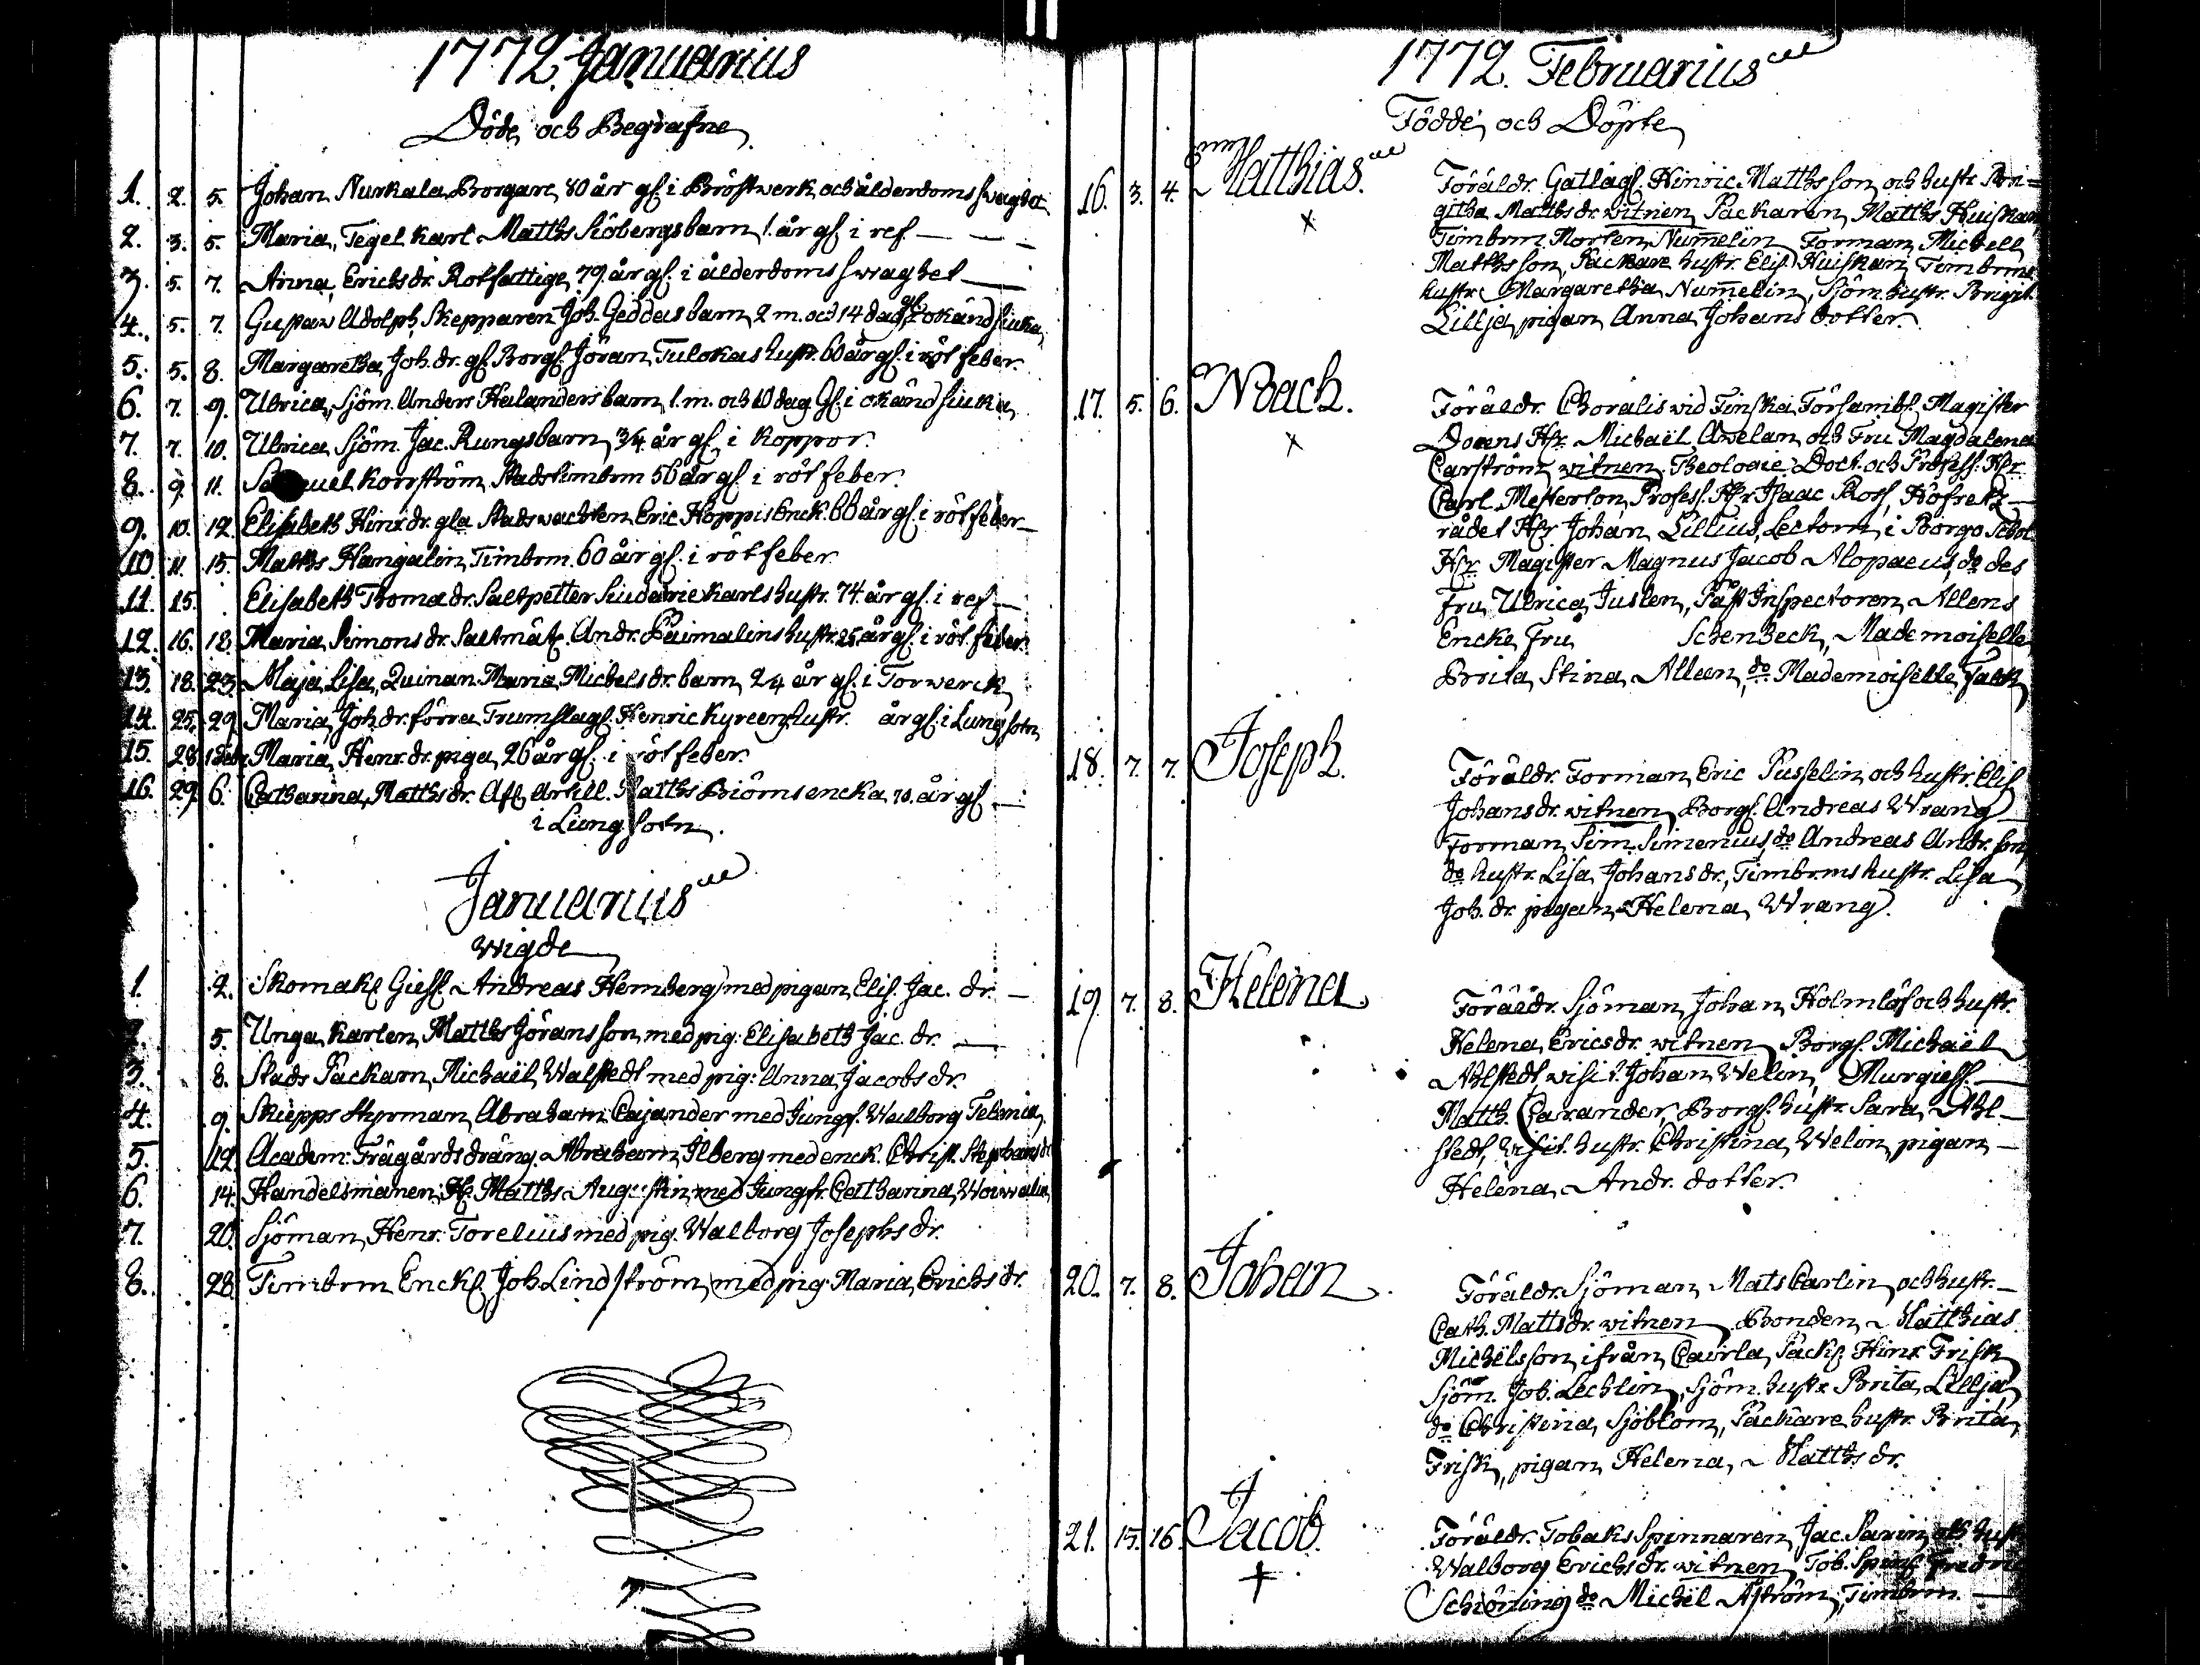 1772. Januarius
Döde och Begrafne
1. 2. 5. Johan Nurkala Borgare 80 år gl. i Bröstwerk och ålderdoms swaghet
2. 3. 5. Maria, Tegel karl Matths Siöbergs barn 1. år gl. i ref — — —
3. 5. 7. Anna, Erichs dr. Rotfattige 79. år gl. i ålderdoms swaghet —
4. 5. 7. Gustaw Adolph, Skepparen Joh. Geddas barn 2 m. och 14 dag. gl. okänd siuka
5. 5. 8. Margaretha Joh. dr. gl. Borgl. Jöran Tulokas hustr. 60 år gl. i röt feber.
6. 7. 9. Ulrica, Sjöm. Anders Helanders barn, 1. m. och 10 dag. Gl. i okänd siuka
7. 7. 10. Ulrica Sjöm. Jac. Rungs barn, 3/4 år gl. i koppor.
8. 9. 11. Korrström Stads timbrm 56 år gl. i röt feber.
9. 10. 12. Elisabeth Hinr. dr. gla Stads wachten Eric Hoppis Enck. 60 år gl. i röt feber —
10. 11. 15. Matths Hangelin, Timbrm. 60 år gl. i röt feber
11. 15. Elisabeth Thoma dr. Saltpetter Siuderie karls hustr. 74 år gl. i ref —
12. 16. 18. Maria Simons dr. Saltmät. Andr. Paimalins hustr. 25 år gl. i röt feber.
13. 18. 23. Maja Lisa, Quinan Maria Michels dr. barn, 2 4 år gl. i Torwerck
14. 25. 29. Maria Joh. dr. förra Trumslag. Henric Kyreens hustr. år gl. i Lungsotn
15. 28. 1 Feb. Maria, Henr. dr. piga, 26 år gl. i röt feber.
16. 29. 6. Catharina Matths dr. Afl. Artill. Matths Biörns encka, 70. år gl. —
i Lungsotn.
Januarius
wigde
1. 2. Skomak. Giesl. Andreas Hemberg med pigan Elis. Jac. dr. —
2. 5. Unga karlen Matths Jöransson, med pig: Elisabeth Jac. dr. —
3. 8. Stads Packarn, Michaël Walstedt med pig: Anna Jacobs dr.
4. 9. Skiepps styrman, Abraham Cajander med Jungf. Walborg Telenia
5. 12. Academ: Trägårdsdräng. Abraham Ilberg med enck. Christ. Stephans dr
6. 14. Handelsmanen: Hr. Matths Augustin med Jungfr. Catharina
7. 20. Sjöman, Henr. Torelius med pig. Walborg Josephs dr.
8. 28. Timbrm Enckl. Joh. Lindström, med pig. Maria Erichs dr.
1772. Februarius
Födde och Döpte
16. 3. 4. Matthias. Föräldr. Gatlägg. Hinric Mattsson och hustr. Bri=
githa Matths dr. witnen Packaren Matths Huiskari
Timbrm. Morten Numelin Forman Michell
Matthsson, Packare hustr. Elis. Huiskari, Timbrms
hustr. Margaretha Numelin, Sjöm. hustr. Brigit.
Lillja, pigan Anna Johans dotter.
17. 5. 6. Noach. Föräldr. Choralis wid Finska Försambl. Magister
Docens Hr. Michaël Awelan och Fru Magdalena
Carström witnen Theologie Doct. och Profess. Hr.
Carl Mesterton, Profess. Hr. Isaac Ross, Hofretz
rådet Hr. Johan Lillius, Lectorn i Borgo
Hr. Magister Magnus Jacob Alopaeus, do des
fru Ulrica Juslen, Påst Inspectoren Allens
Encke Fru Schenbeck, Mademoiselle
Brita Stina Alleen, do Mademoiselle Falck
18. 7. 7. Joseph. Föräldr. Forman Eric Pusselin och hustr. Elis
Johans dr. witnen Borgl. Andreas Wrang
Forman, Sim. Simenius, do Andreas Andr. son
do hustr. Lisa Johans dr., Timbrms hustr. Lisa
Joh. dr. pigan Helena, Wrang.
19. 7. 8. Helena Föräldr. Sjöman Johan Holmlöf och hustr.
Helena Erics dr. witnen Borgl. Michaël
Ahlstedt wisit. Johan Welin, Murgiesl. —
Matth. Caxander, Borgl. hustr. Sara Ahl—
stedt, Visit. hustr. Christina Welin, pigan —
Helena Andr. dotter.
20. 7. 8. Johan Föräldr. Sjöman Mats Carlin och hustr. —
Cath. Matts dr. witnen Bonden Matthias
Michëlsson ifrån Caårla Packl. Hinr. Frisk
Sjöm. Joh. Lechlin, Sjöm. hustr. Brita, Lillja
do Christina Sjöblom, Packare hustr. Brita
Frisk, pigan Helena Matths dr.
21. 15. 16. Jacob. Föräldr. Tobaks Spinnaren Jac. Parin och hustr
Walborg Erichs dr. witnen Tob. Spin. Fredric
Schiöning do Michel Åström, Timbrm. —